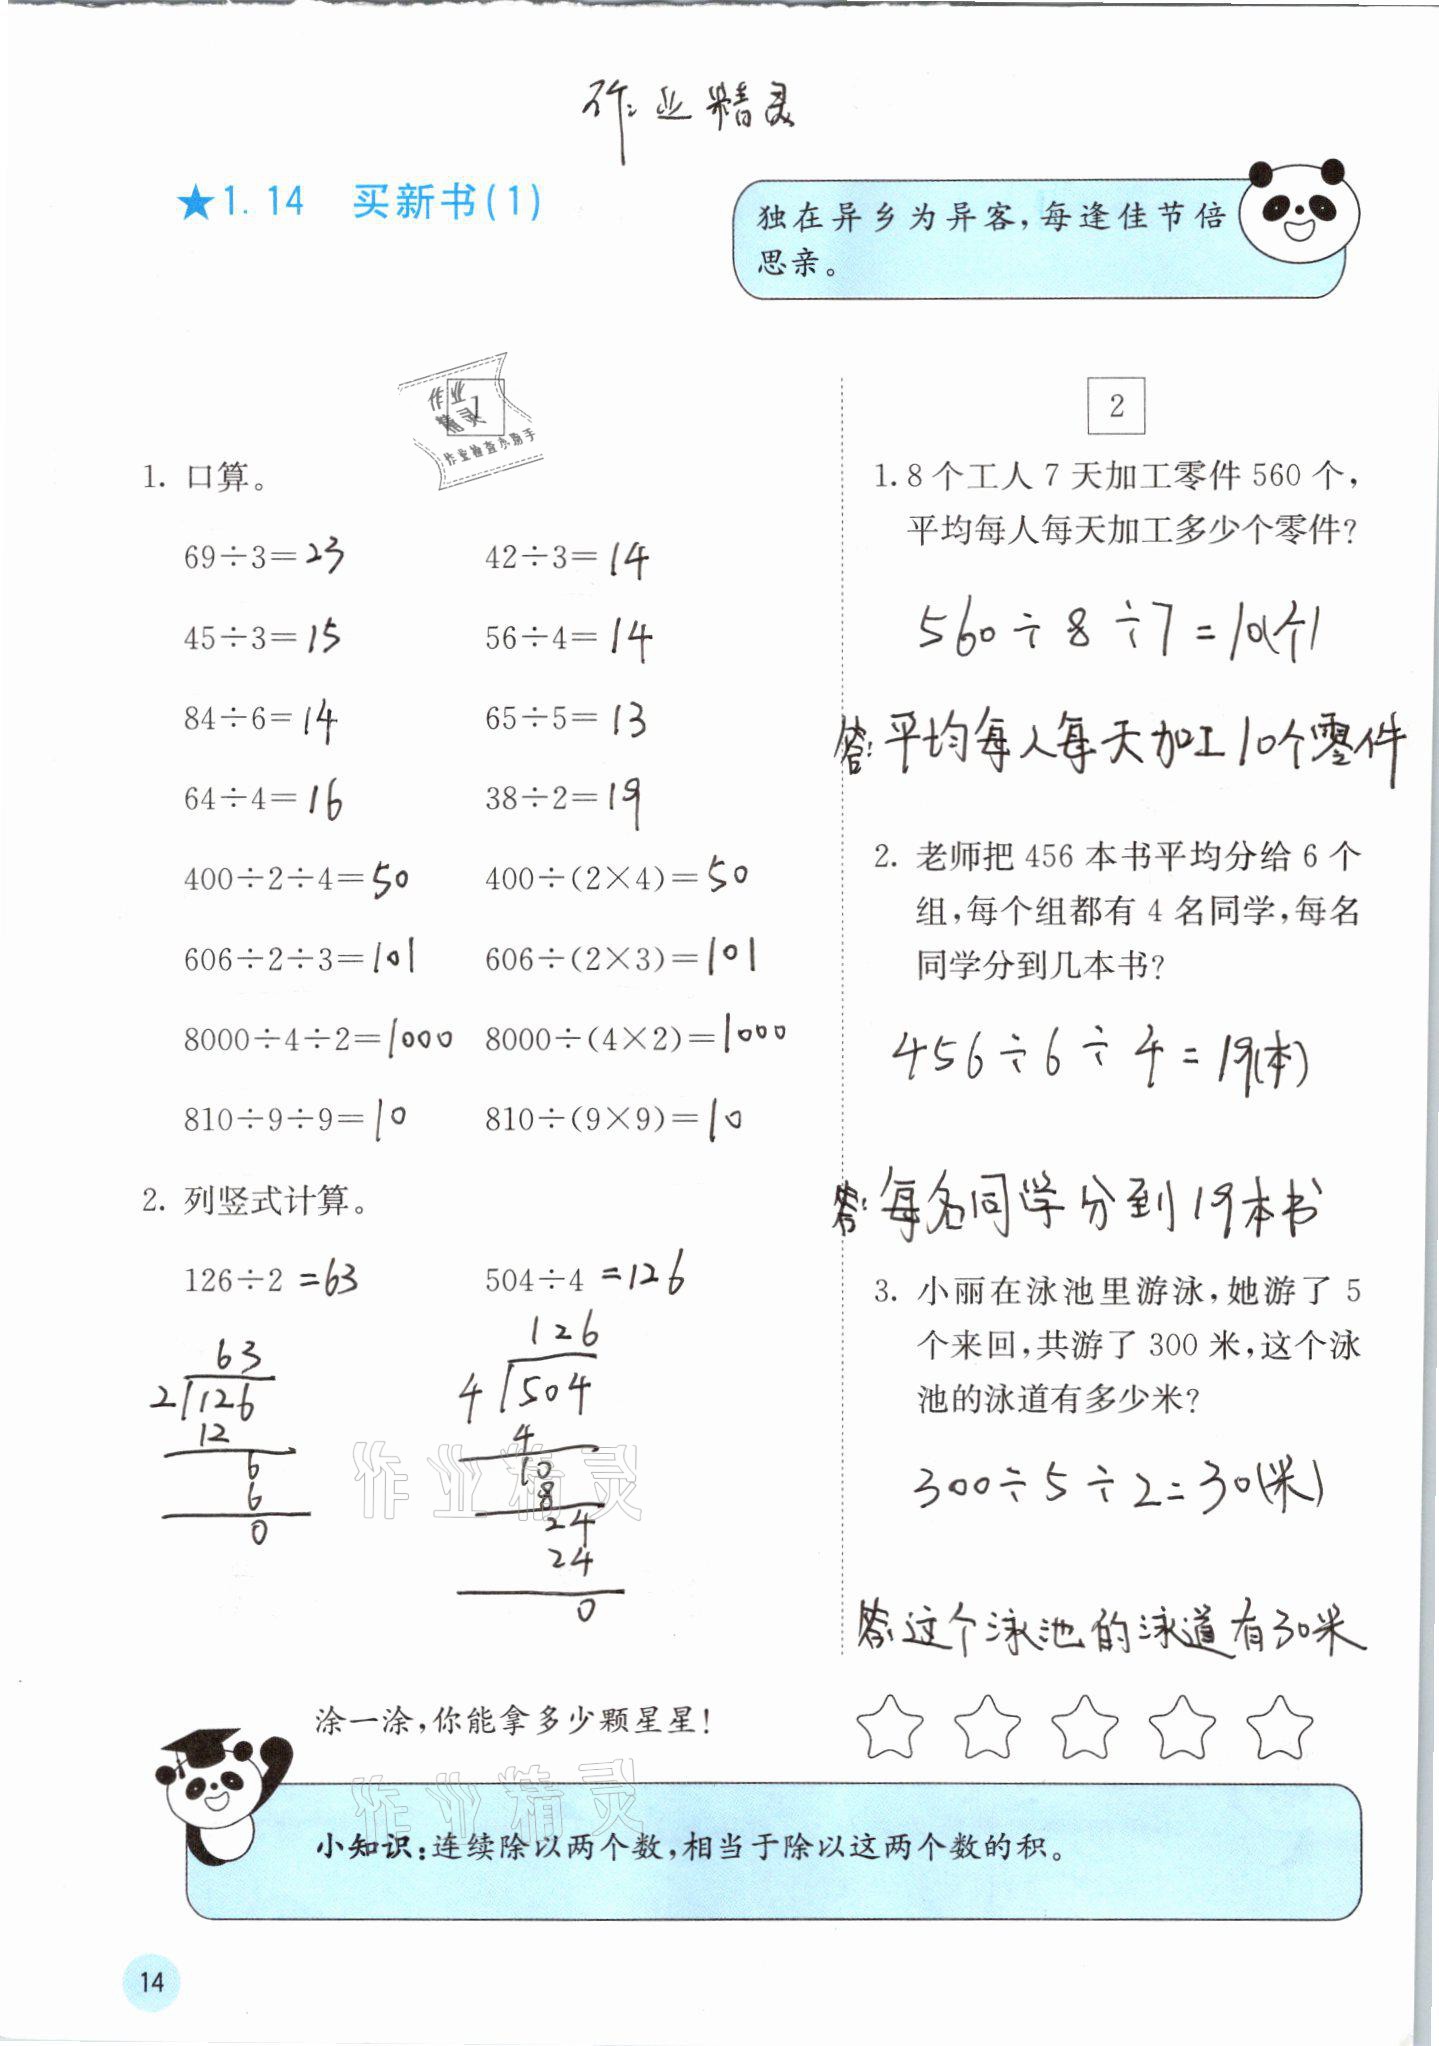 作业精灵
★1.14 买新书(1)
独在异乡为异客,每逢佳节倍
思亲。
作业
精灵
作业检查小助手
1
1. 口算。
69÷3=23 42÷3=14
45÷3=15 56÷4=14
84÷6=14 65÷5=13
64÷4=16 38÷2=19
400÷2÷4=50 400÷(2×4)=50
606÷2÷3=101 606÷(2×3)=101
8000÷4÷2=1000 8000÷(4×2)=1000
810÷9÷9=10 810÷(9×9)=10
2. 列竖式计算。
126÷2 =63 504÷4 =126
63
2 126
12
6
6
0
126
4 504
4
10
8
24
24
0
2
1. 8个工人7天加工零件560个,
平均每人每天加工多少个零件?
560÷8÷7=10(个)
答:平均每人每天加工10个零件
2. 老师把456本书平均分给6个
组,每个组都有4名同学,每名
同学分到几本书?
456÷6÷4=19(本)
答:每名同学分到19本书
3. 小丽在泳池里游泳,她游了5
个来回,共游了300米,这个泳
池的泳道有多少米?
300÷5÷2=30(米)
答:这个泳池的泳道有30米
作业精灵
涂一涂,你能拿多少颗星星!
作业精灵
小知识:连续除以两个数,相当于除以这两个数的积。
14